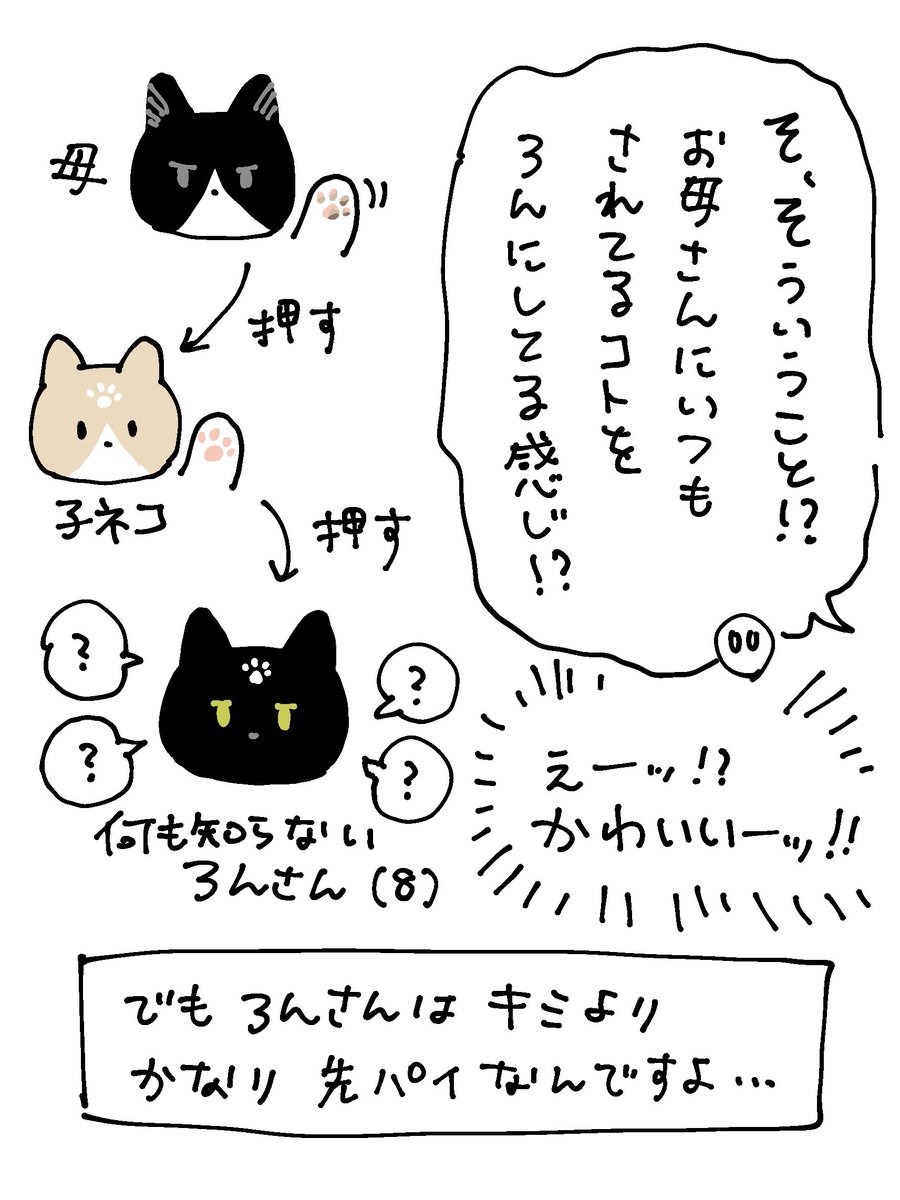 そ、そういうこと!?
お母さんにいつも
されてるコトを
ろんにしてる感じ!?
母
押す
子ネコ
押す
?
?
?
?
何も知らない
ろんさん(8)
えーッ!?
かわいいーッ!!
でも ろんさんは キミより
かなり 先パイ なんですよ…